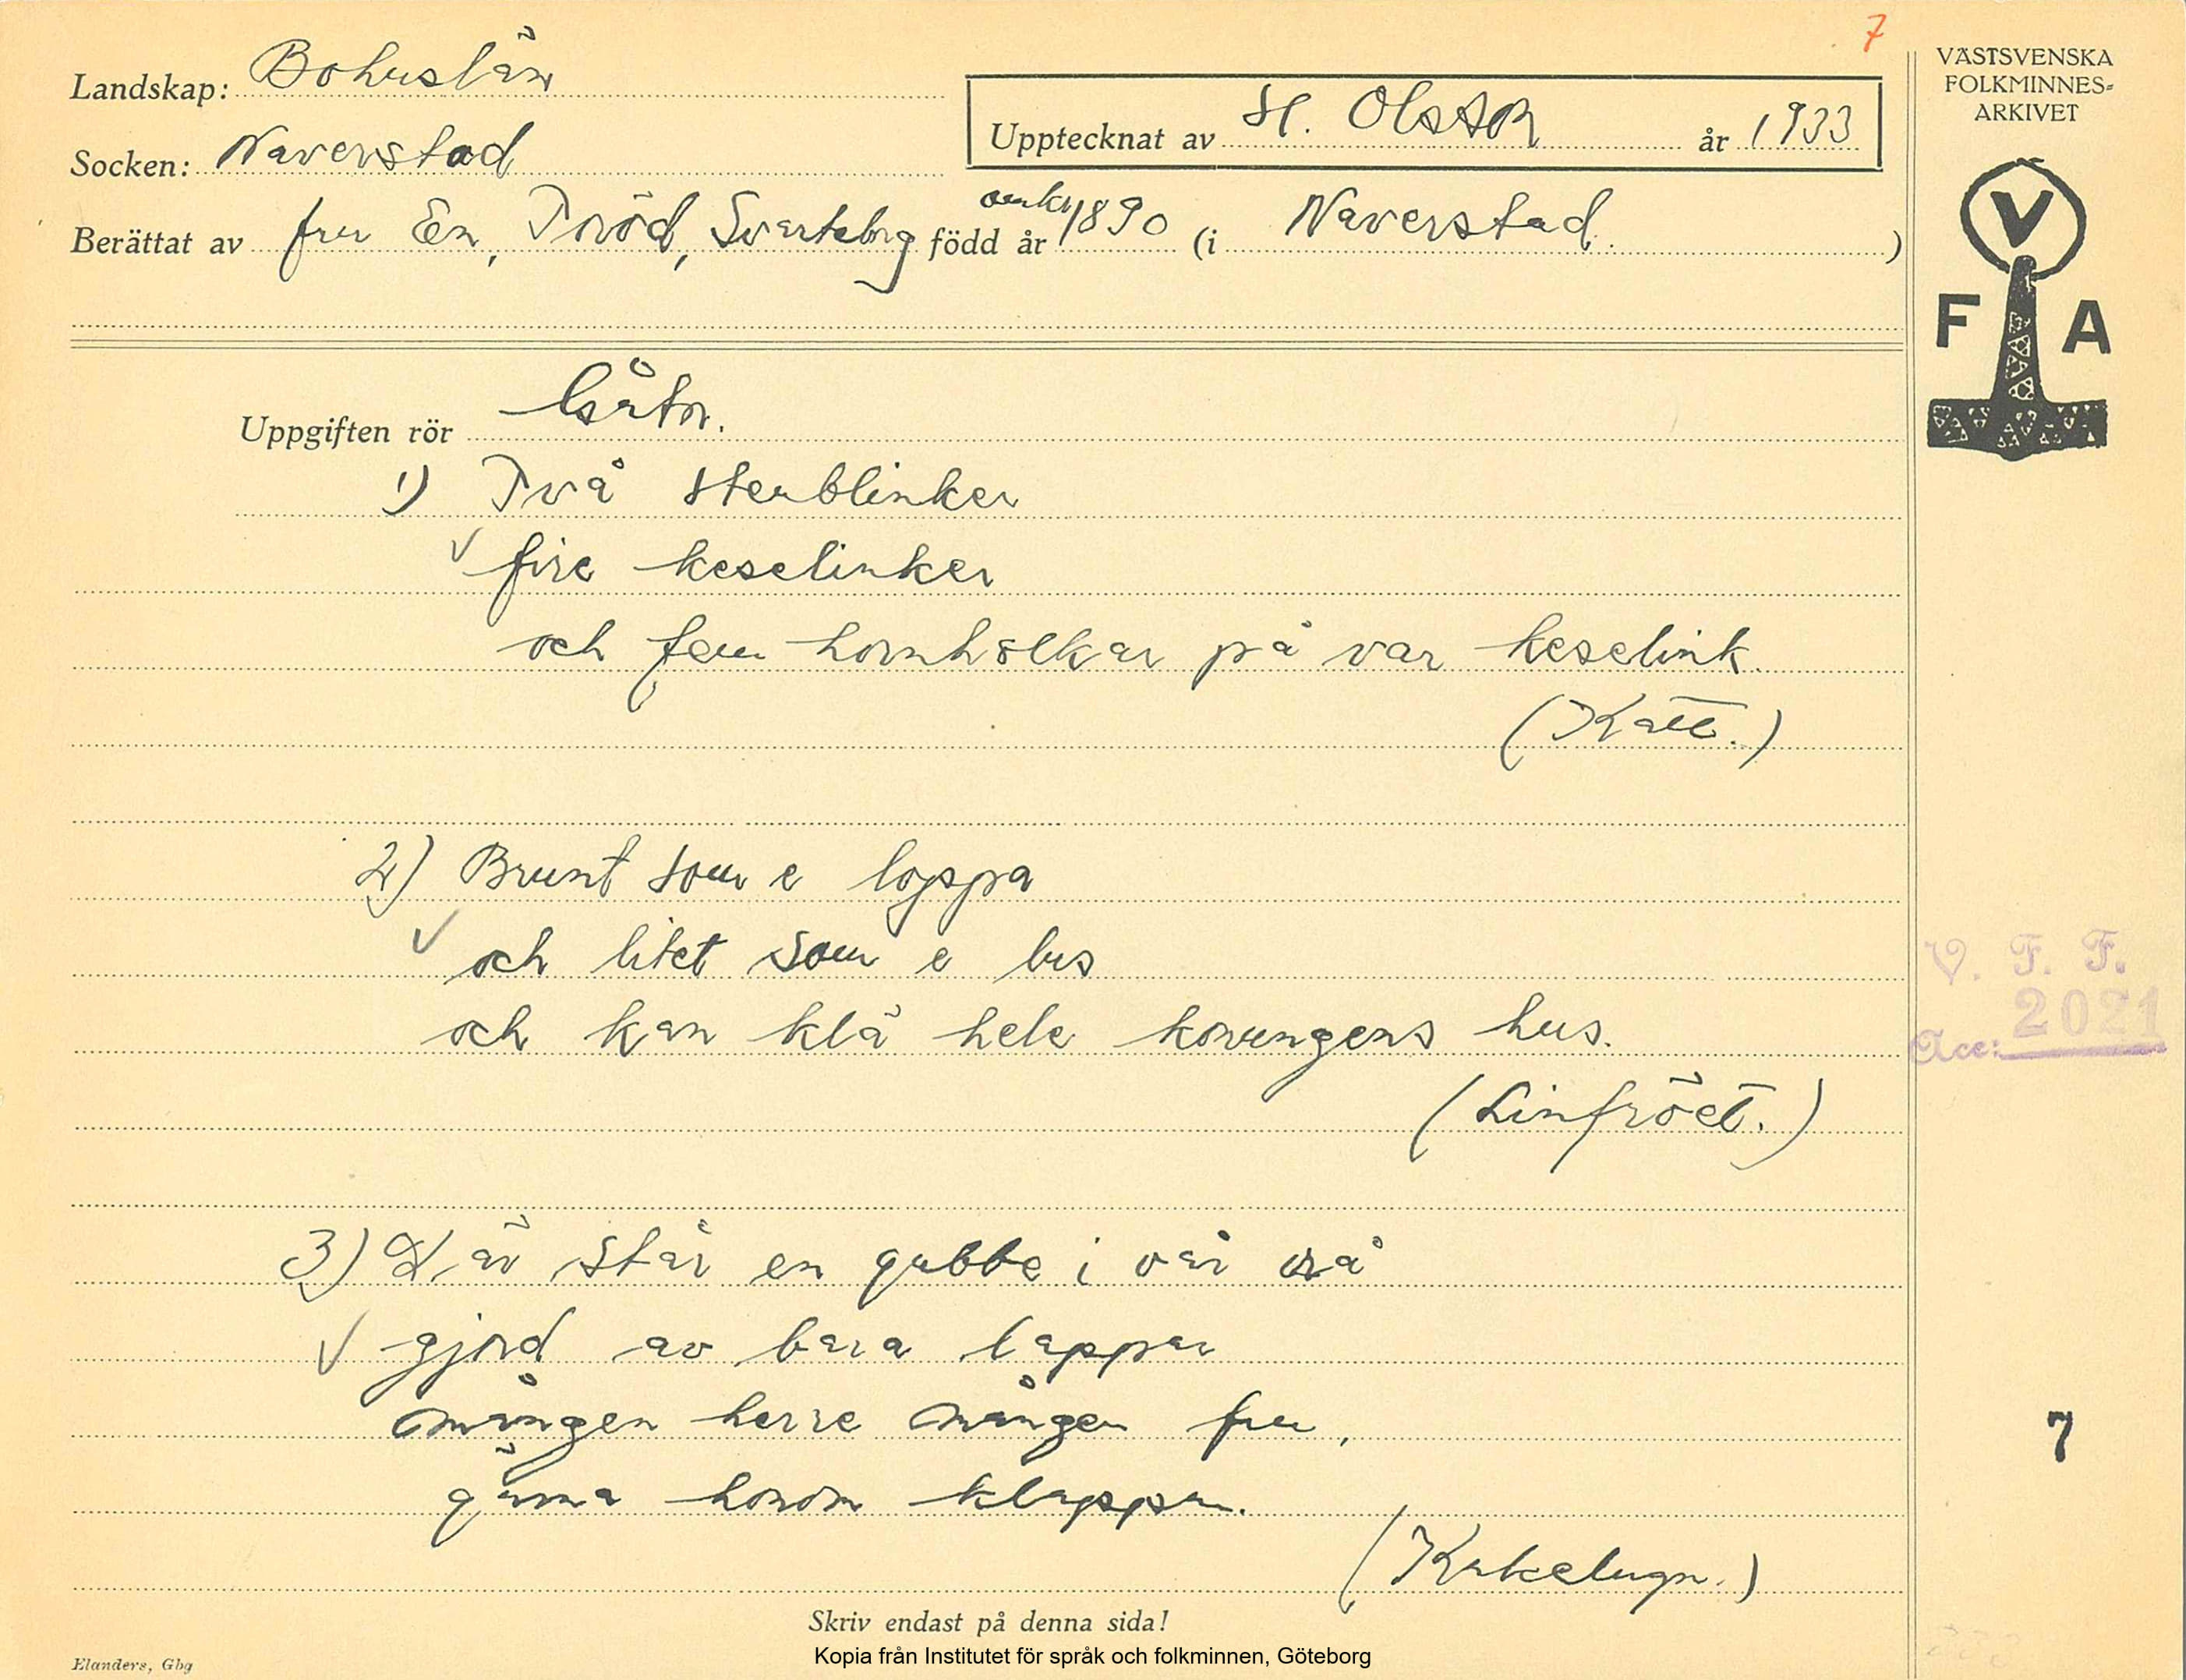 7
Landskap: Bohuslän
Socken: Naverstad
Upptecknat av H. Olsson år 1933
Berättat av fru En, Svarteborg född år omkr 1890 (i Naverstad.)
VÄSTSVENSKA
FOLKMINNES-
ARKIVET
V
F A
Uppgiften rör Gåtor.
1) Två stenblinker
fire keselinker
och fem hornhölkar på var keselink.
(Katt.)
2) Brunt som e loppa
och litet som e lus
och kan klä hele konungens hus.
(Linfröet.)
V. F. F.
Acc: 2021
3) Där står en gubbe i vår vrå
gjord av bara lappar
mången herre mången fru,
gärna honom klappar.
(Kakelugn.)
7
Skriv endast på denna sida!
Kopia från Institutet för språk och folkminnen, Göteborg
Elanders, Gbg